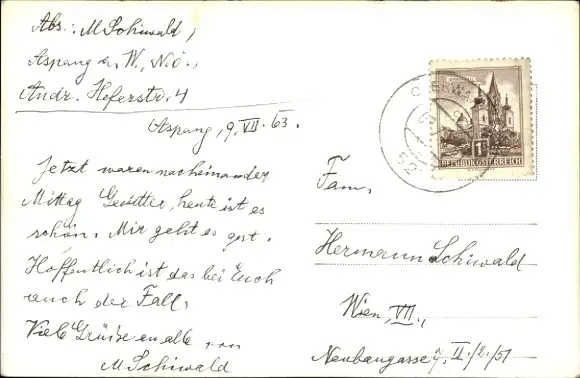 Abs.: M Schiwald,
Aspang a. W., N.Ö.,
Andr. Hoferstr. 4
Aspang, 9. VII. 63.
Jetzt waren nacheinander
Mittag Gewitter, heute ist es
schön. Mir geht es gut.
Hoffentlich ist das bei Euch
auch der Fall.
Viele Grüße an alle von
M Schiwald
REPUBLIK ÖSTERREICH
Fam.
Hermann Schiwald
Wien, VII.,
Neubaugasse 7, II./2./51